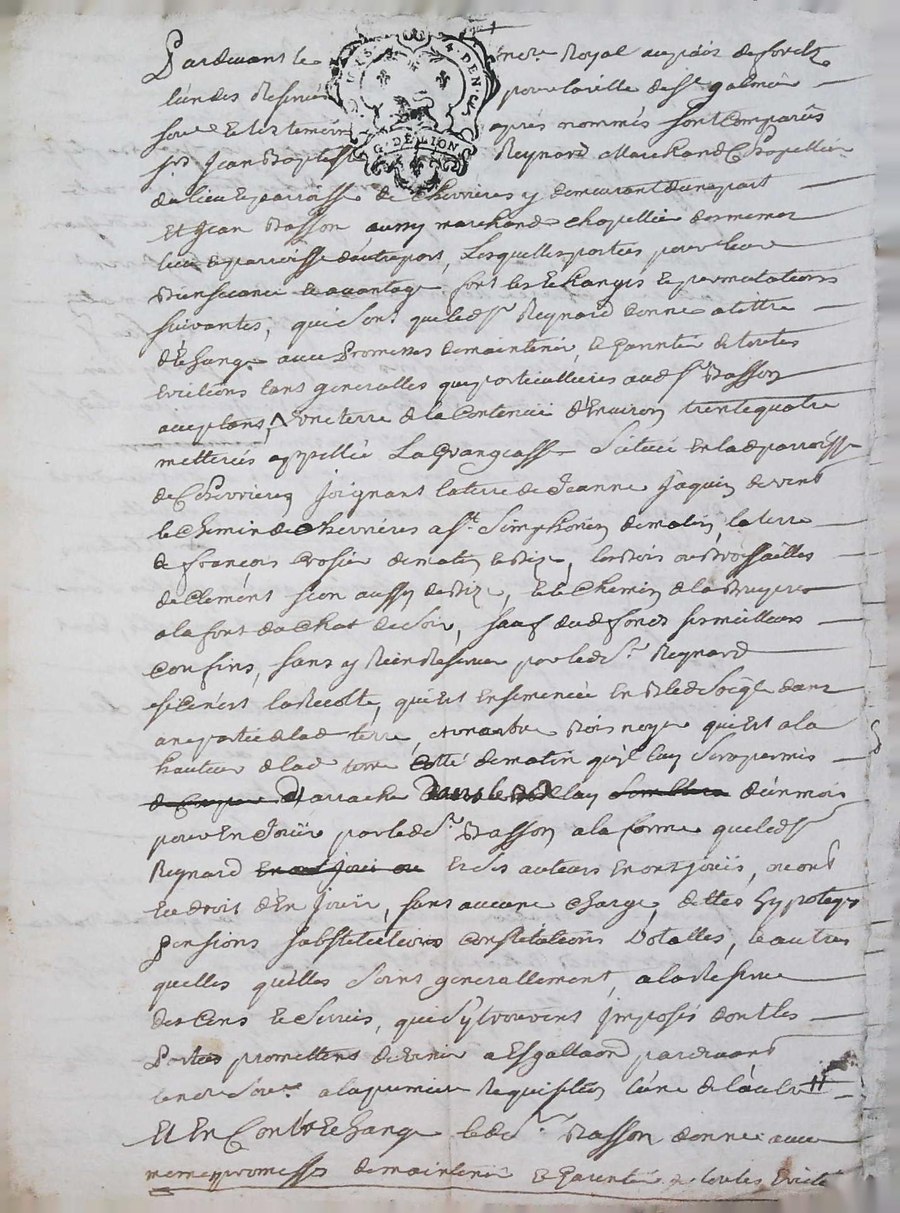 Pardevant le no.re Royal au pais de forests
l'un des Reservés pour la ville de St galmier
sous.né et les temoins apres nommés sont comparus
sr Jean Baptiste Reynard Marchand Chapellier
du lieu et parroisse de Chevrieres y demeurant d'une part
Et Jean Basson aussy marchand chapellier du meme
lieu et parroisse d'autre part, Lesquelles parties pour leur
Bienseance et avantage font les Echanges et permutations
suivantes, qui sont que led. sr Reynard donne a tittre
d'Echange avec Promesses de maintenir, et Garentir de toutes
Evictions tant generalles que particullieres aud. sr Basson
acceptant, Une terre de la Contenue d'Environ trente quatre
metterées appellée La Grangeasse scituée En lad. parroisse
de Chevrieres Joignant la terre de Jeanne Jaquin de vent
le Chemin de Chevrieres a St Simphorien de matin, la terre
de François de matin et Bize, les Bois ou Brossailles
de Clement sion aussy de Bize, et le Chemin de la Bruyere
a la font du Chat de soir, sauf dud. fonds ses meilleurs
confins, sans y Rien Reserver par led. sr. Reynard
si ce n'est la Recolte, qui Est Ensemencée En Bled Soigle dans
une partie de lad. terre, et un arbre Bois noyer qui Est a la
hauteur de lad. terre Cotté de matin qu'il luy sera permis
d'arracher d'un mois
pour En Jouïr par led. sr. Basson a la forme que led. sr
Reynard En ont joui ou Et ses auteurs En ont jouïs, ou ont
Eu droit d'En Jouïr, sans aucune charge, dettes hypoteqs
pensions substitutions constitutions Dotalles, et autres
quelles qu'elles soint generallement, a la Reserve
des Cens et Servis, qui s'y trouvent Imposés dont les
Parties promettent de venir a Esgallaon pardevant
le nore sous.né a la premiere Requisition l'une de l'autre
Et En Contr'Echange led. sr. Basson donne avec
meme promesses de maintenir et Garentir de toutes Evicti
G. DE LION
4. DEN